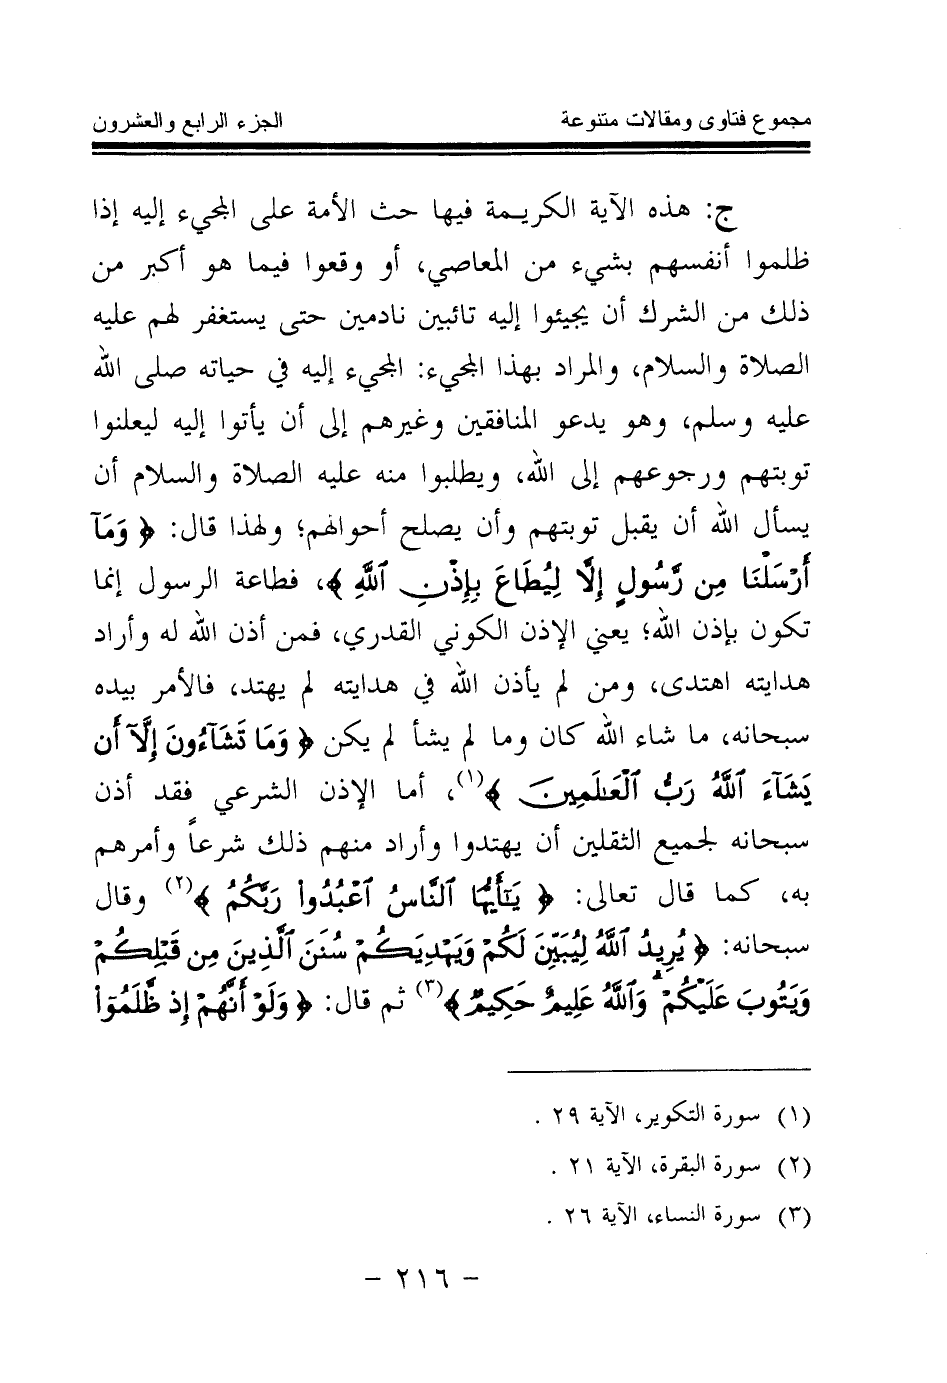 مجموع فتاوى ومقالات متنوعة
الجزء الرابع والعشرون
ج: هذه الآية الكريمة فيها حث الأمة على المجيء إليه إذا
ظلموا أنفسهم بشيء من المعاصي، أو وقعوا فيما هو أكبر من
ذلك من الشرك أن يجيئوا إليه تائبين نادمين حتى يستغفر لهم عليه
الصلاة والسلام، والمراد بهذا المجيء: المجيء إليه في حياته صلى الله
عليه وسلم، وهو يدعو المنافقين وغيرهم إلى أن يأتوا إليه ليعلنوا
توبتهم ورجوعهم إلى الله، ويطلبوا منه عليه الصلاة والسلام أن
يسأل الله أن يقبل توبتهم وأن يصلح أحوالهم؛ ولهذا قال: ﴿ وَمَآ
أَرْسَلْنَا مِن رَّسُولٍ إِلَّا لِيُطَاعَ بِإِذْنِ ٱللَّهِ ﴾، فطاعة الرسول إنما
تكون بإذن الله؛ يعني الإذن الكوني القدري، فمن أذن الله له وأراد
هدايته اهتدى، ومن لم يأذن الله في هدايته لم يهتد، فالأمر بيده
سبحانه، ما شاء الله كان وما لم يشأ لم يكن ﴿ وَمَا تَشَآءُونَ إِلَّآ أَن
يَشَآءَ ٱللَّهُ رَبُّ ٱلْعَٰلَمِينَ ﴾(١)، أما الإذن الشرعي فقد أذن
سبحانه لجميع الثقلين أن يهتدوا وأراد منهم ذلك شرعاً وأمرهم
به، كما قال تعالى: ﴿ يَٰٓأَيُّهَا ٱلنَّاسُ ٱعْبُدُوا۟ رَبَّكُمُ ﴾(٢) وقال
سبحانه: ﴿ يُرِيدُ ٱللَّهُ لِيُبَيِّنَ لَكُمْ وَيَهْدِيَكُمْ سُنَنَ ٱلَّذِينَ مِن قَبْلِكُمْ
وَيَتُوبَ عَلَيْكُمْ ۗ وَٱللَّهُ عَلِيمٌ حَكِيمٌ ﴾(٣) ثم قال: ﴿ وَلَوْ أَنَّهُمْ إِذ ظَّلَمُوٓا۟
(١) سورة التكوير، الآية ٢٩ .
(٢) سورة البقرة، الآية ٢١ .
(٣) سورة النساء، الآية ٢٦ .
- ٢١٦ -